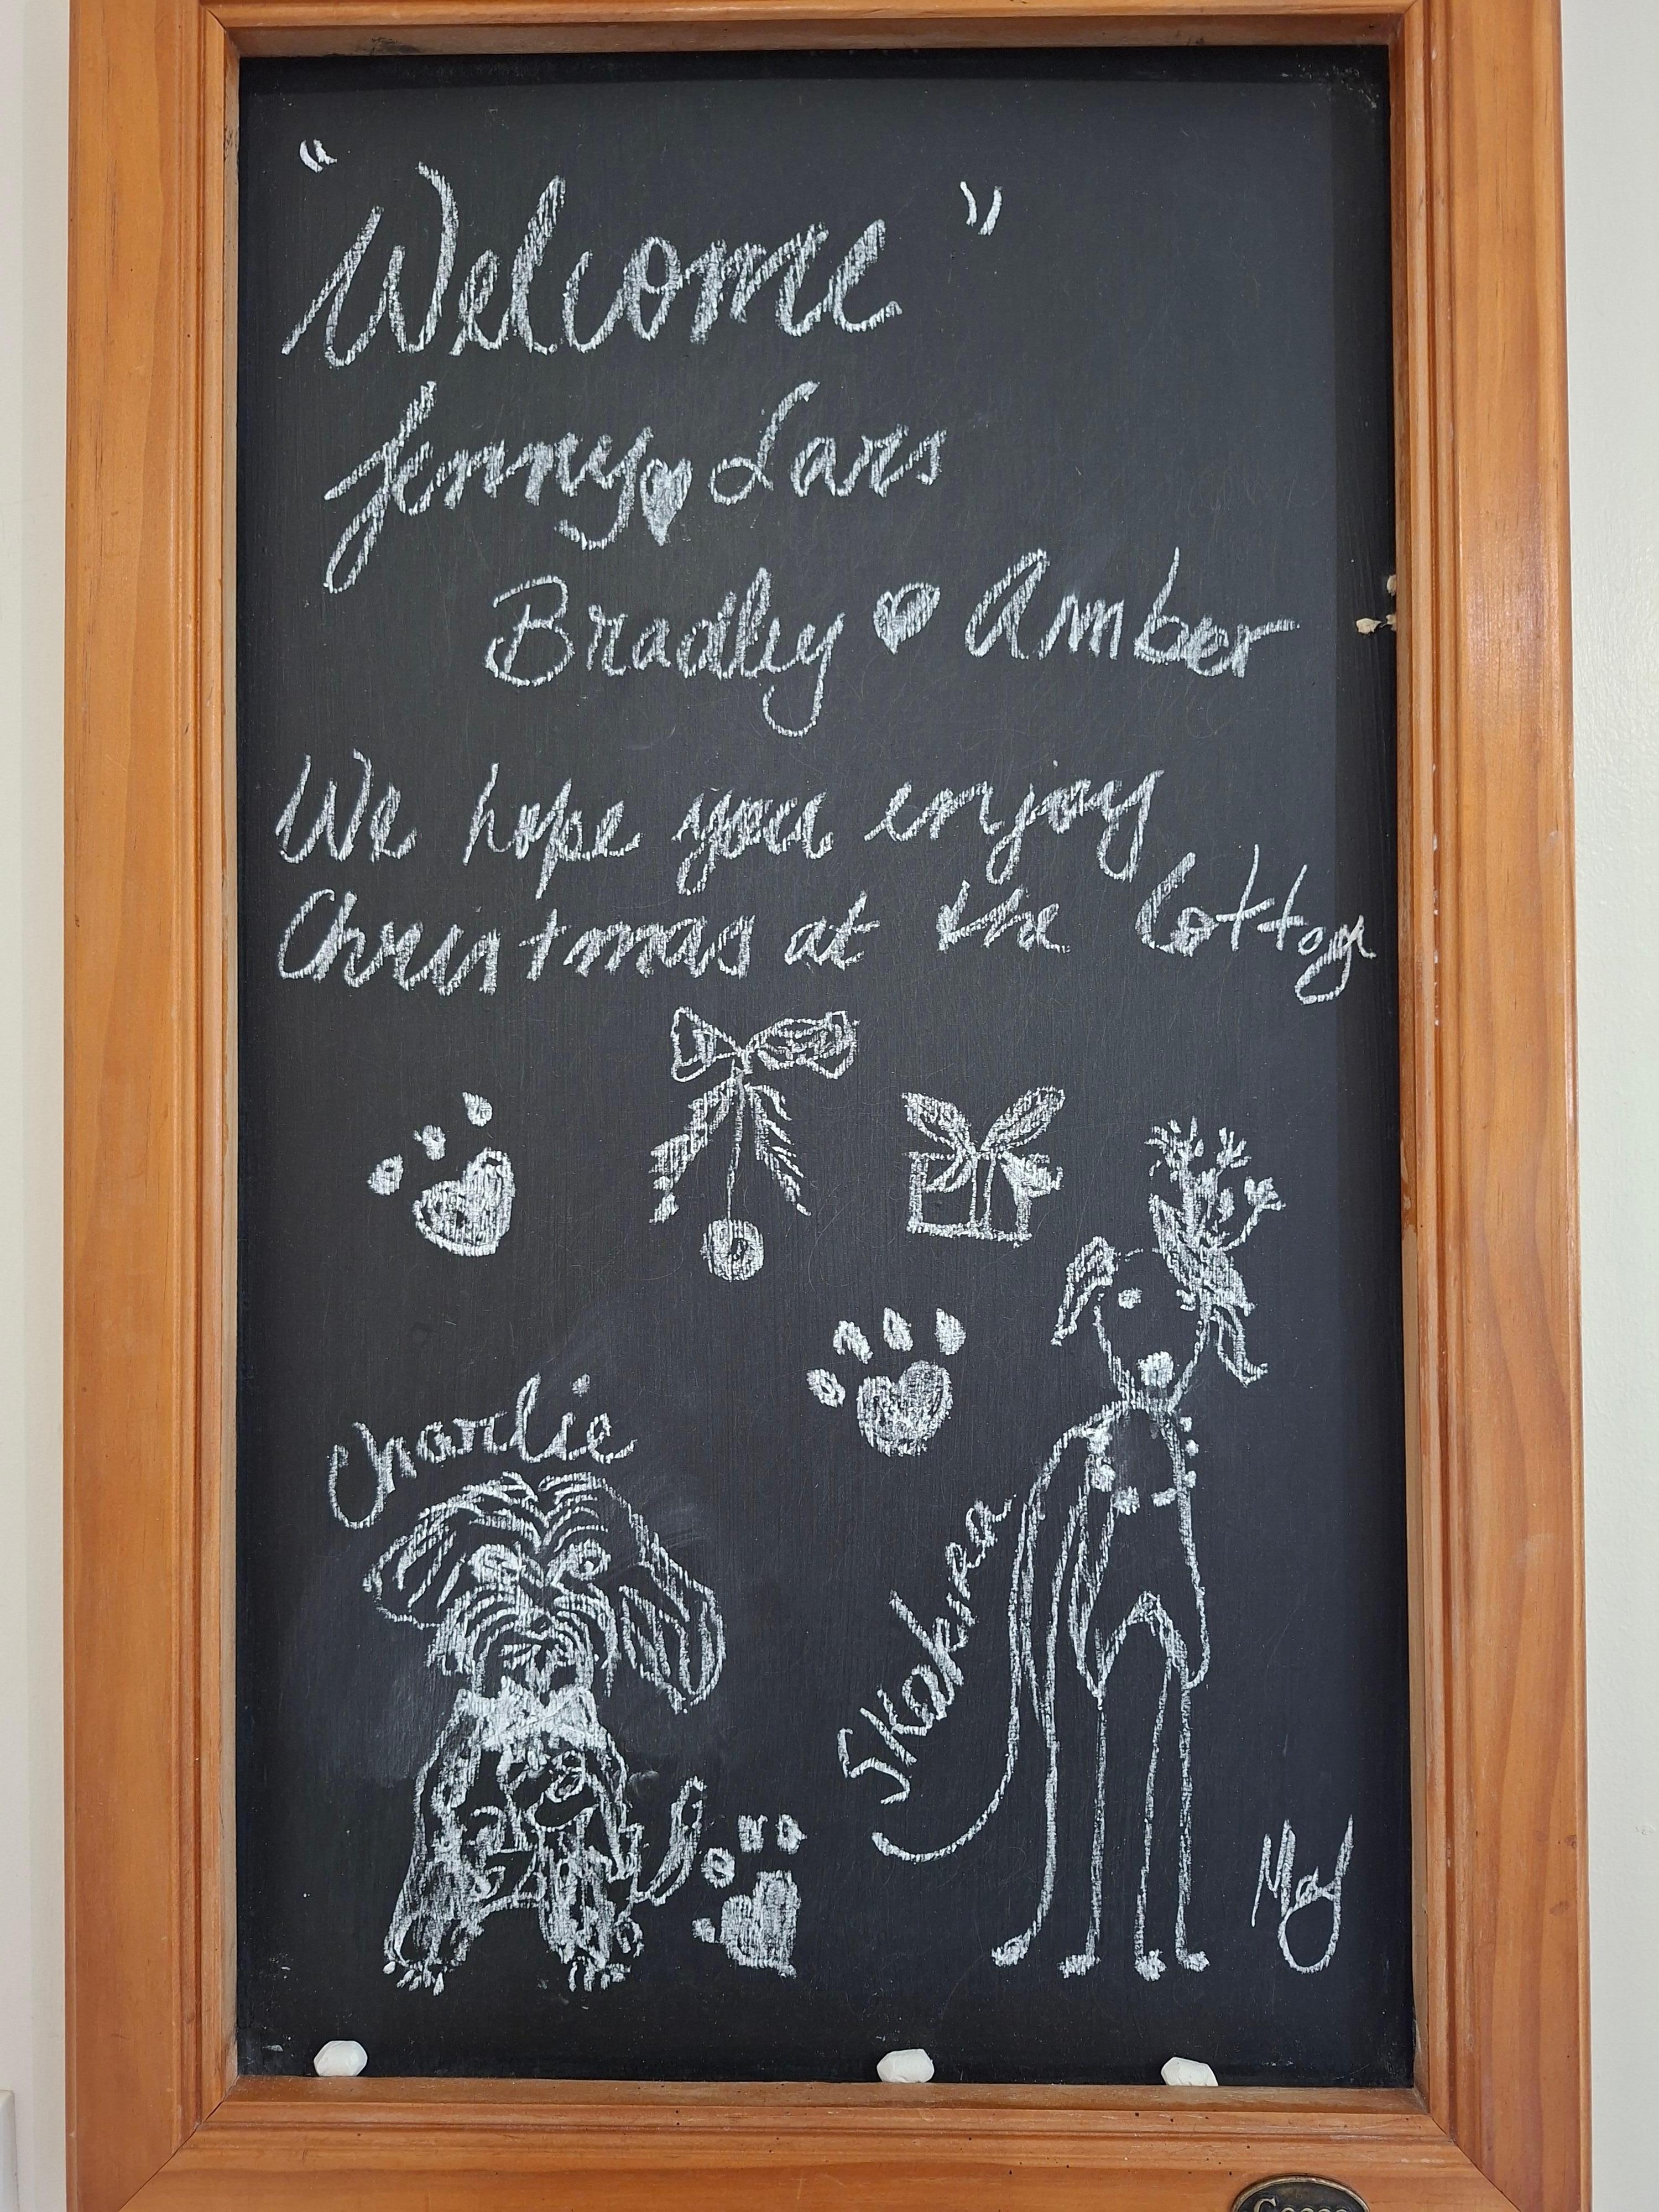 "Welcome"
Jenny Lars
Bradley Amber
We hope you enjoy
Christmas at the Cottage
Charlie
Skakira